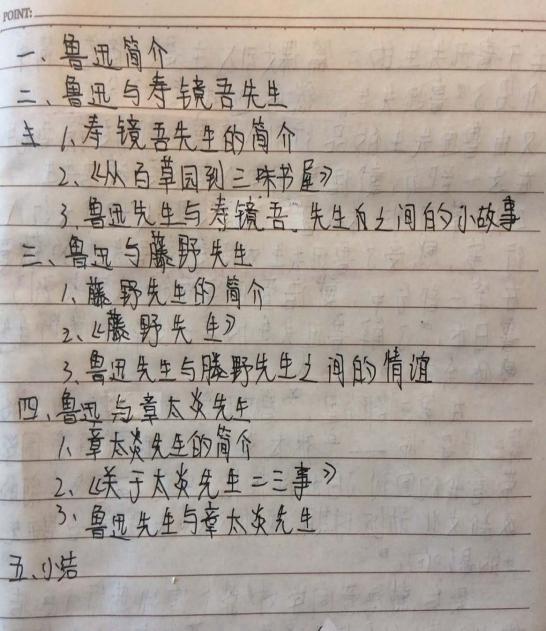 POINT:
一、鲁迅简介
二、鲁迅与寿镜吾先生
1、寿镜吾先生的简介
2、《从百草园到三味书屋》
3、鲁迅先生与寿镜吾先生之间的小故事
三、鲁迅与藤野先生
1、藤野先生的简介
2、《藤野先生》
3、鲁迅先生与藤野先生之间的情谊
四、鲁迅与章太炎先生
1、章太炎先生的简介
2、《关于太炎先生二三事》
3、鲁迅先生与章太炎先生
五、小结